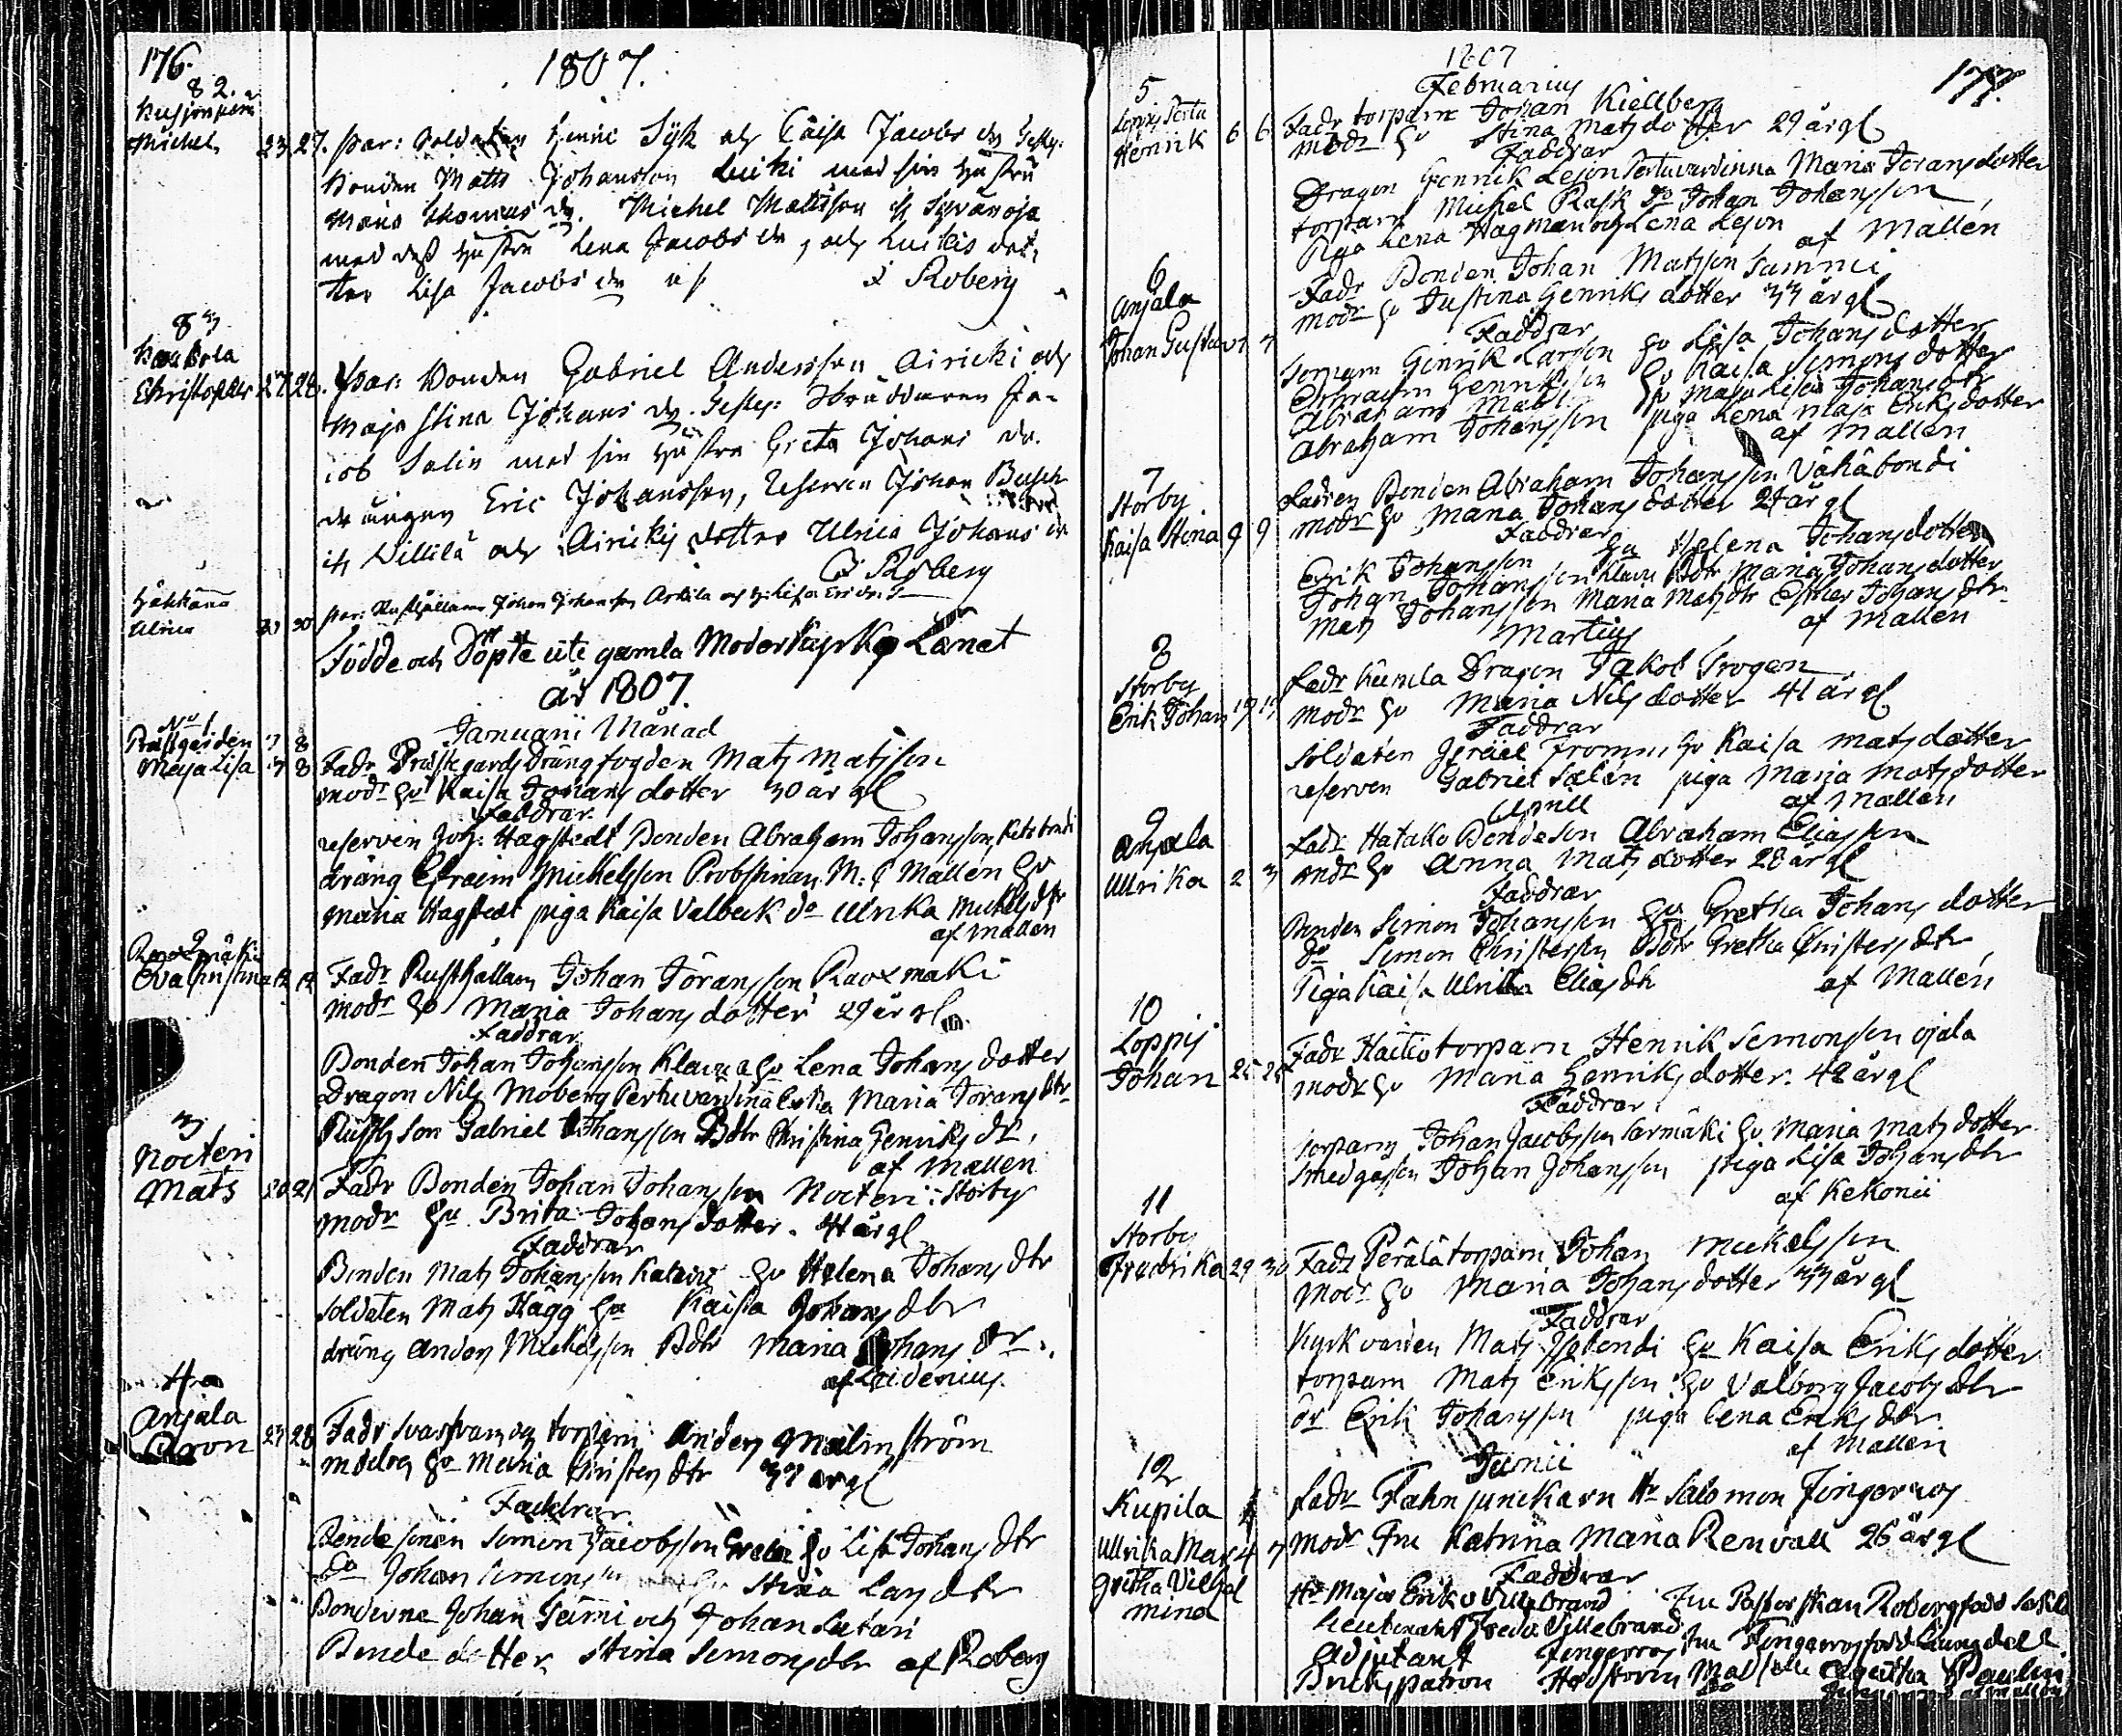 176.
1807.
82.
Michel 23 27. Par: Soldaten Henric Syk och Caisa Jacobs dr
bonden Matts Johansson Luiki med sin hustru
Maria Thomas dr. Michel Mattsson
med dess hustru Lena Jacobs dr, och Luikis dot-
ter Lisa Jacobs dr af Roberg
83
Christopher 27 28. Par: bonden Gabriel Andersson Airicki och
Maja Stina Johans dr. Skräddaren Ja-
cob Salin med sin hustru Greta Johans dr.
drängen Eric Johansson, Reserven Johan Busch
och Airickis dotter Ulrica Johans dr
Roberg
Ulrica 30
Födde och Döpte uti gamla Moderkyrko Länet
år 1807.
Januarii Månad
No 1
Prästgården 7 8
Maja Lisa 7 8 Fadr Prästgårds Drängfogden Mats Matsson
modr hu Kaisa Johans dotter 30 år gl
Faddrar
reserven Joh: Hagstedt Bonden Abraham Johansson
dräng Efraim Mickelsson Probstinnan M: C Mallen hu
Maria Hagstedt piga Kaisa Valbeck do Ulrika Mickels dtr
af Mallen
2
Ravxmäki
Eva Christina 12 12 Fadr Rusthållarn Johan Jöransson Ravxmaki
modr hu Maria Johans dotter 29 år gl
Faddrar
Bonden Johan Johansson Klavu hu Lena Johans dotter
Dragon Nils Moberg Maria Jörans dtr
Rusth son Gabriel Johansson Bdtr Christina Henriks dr,
af Mallen
3
Nocteri
Mats 20 21 Fadr Bonden Johan Johansson Nocteri: Storby
modr hu Brita Johans dotter. 44 år gl
Faddrar
Bonden Mats Johansson hu Helena Johans dtr
soldaten Mats Hägg hu Kaisa Johans dtr
dräng Anders Mickelsson Bdtr Maria Johans dr.
af Leidenius
4
Anjala
Aron 27 28 Fadr torparn Anders Malmström
modren hu Maria Christers dtr 37 år gl
Faddrar
Bondesonen Simon Jacobsson hu Lisa Johans dtr
Do Johan Simonsson Stina Lars dtr
Bönderne Johan Sämi och Johan Sutari
Bonde dotter Stina Simons dtr af Roberg
1807
177.
Februarius
5
Henrik 6 6 Fadr torparn Johan Kiellberg
modr hu Stina Mats dotter 29 år gl
Faddrar
Dragon Henrik Lejon Maria Jörans dotter
torparn Mickel Rask Do Johan Johansson
Piga Lena Hagman och Lena Lejon
af Mallen
6
Anjala
Johan Gustav 7 7
Fadr Bonden Johan Matsson Sammi
modr hu Justina Henriks dotter 33 år gl
Faddrar
torparn Henrik Larsson hu Lisa Johans dotter
Efraim Henriksson hu Kaisa Simons dotter
Abraham hu Maja Lisa Johans dtr
Abraham Johansson piga Lena Maja Eriks dotter
af Mallen
7
Storby
Kaisa Stina 9 9
Fadren Bonden Abraham Johansson Vähäbondi
modr hu Maria Johans dotter 24 år gl
Faddrar
Erik Johansson hu Helena Johans dotter
Johan Johansson Klavu Bdtr Maria Johans dotter
Mats Johansson Maria Mats dtr Esther Johans dtr
af Mallen
Martius
8
Storby
Erik Johan 19 19
Fadr Kumla Dragon Jakob Trogen
modr hu Maria Nils dotter 41 år gl
Faddrar
soldaten Israel From, hu Kaisa Mats dotter
reserven Gabriel Salén piga Maria Mats dotter
af Mallen
Aprill
9
Anjala
Ullrika 2 3
Fadr Hatakko Bondeson Abraham Eliasson
modr hu Anna Mats dotter 28 år gl
Faddrar
Bonden Simon Johansson hu Gretha Johans dotter
do Simon Christersson Bdtr Gretha Christers dtr
Piga Kaisa Ulrika Elias dtr af Mallen
10
Loppis
Johan 25 25
Fadr Haitio torparn Henrik Simonsson Ojala
modr hu Maria Henriks dotter. 42 år gl
Faddrar
torparn Johan Jacobsson Sarmäki hu Maria Mats dotter
smedgossen Johan Johansson piga Lisa Johans dtr
af Kekonii
11
Storby
Fredrika 29 30
Fadr Peräläs torparn Johan Mickelsson
modr hu Maria Johans dotter 33 år gl
Faddrar
Kyrkvärden Mats Isobondi hu Kaisa Eriks dotter
torparn Mats Eriksson hu Valborg Jacobs dtr
dr Erik Johansson piga Lena Eriks dtr
af Mallen
Junii
12
Kupila
Ullrika Mar 4 7
Gretha Vilhel
mina
Fadr Fahnjunckarn Hr Salomon Fingerroos
modr Fru Katrina Maria Renvall 26 år gl
Faddrar
Hr Major Erik v Villebrand Fru Pastorskan Roberg född
Lieutenant Fredr Villebrand Fru Fingerroos född
Adjutant Fingerroos
Bruks patron Agatha Paulin